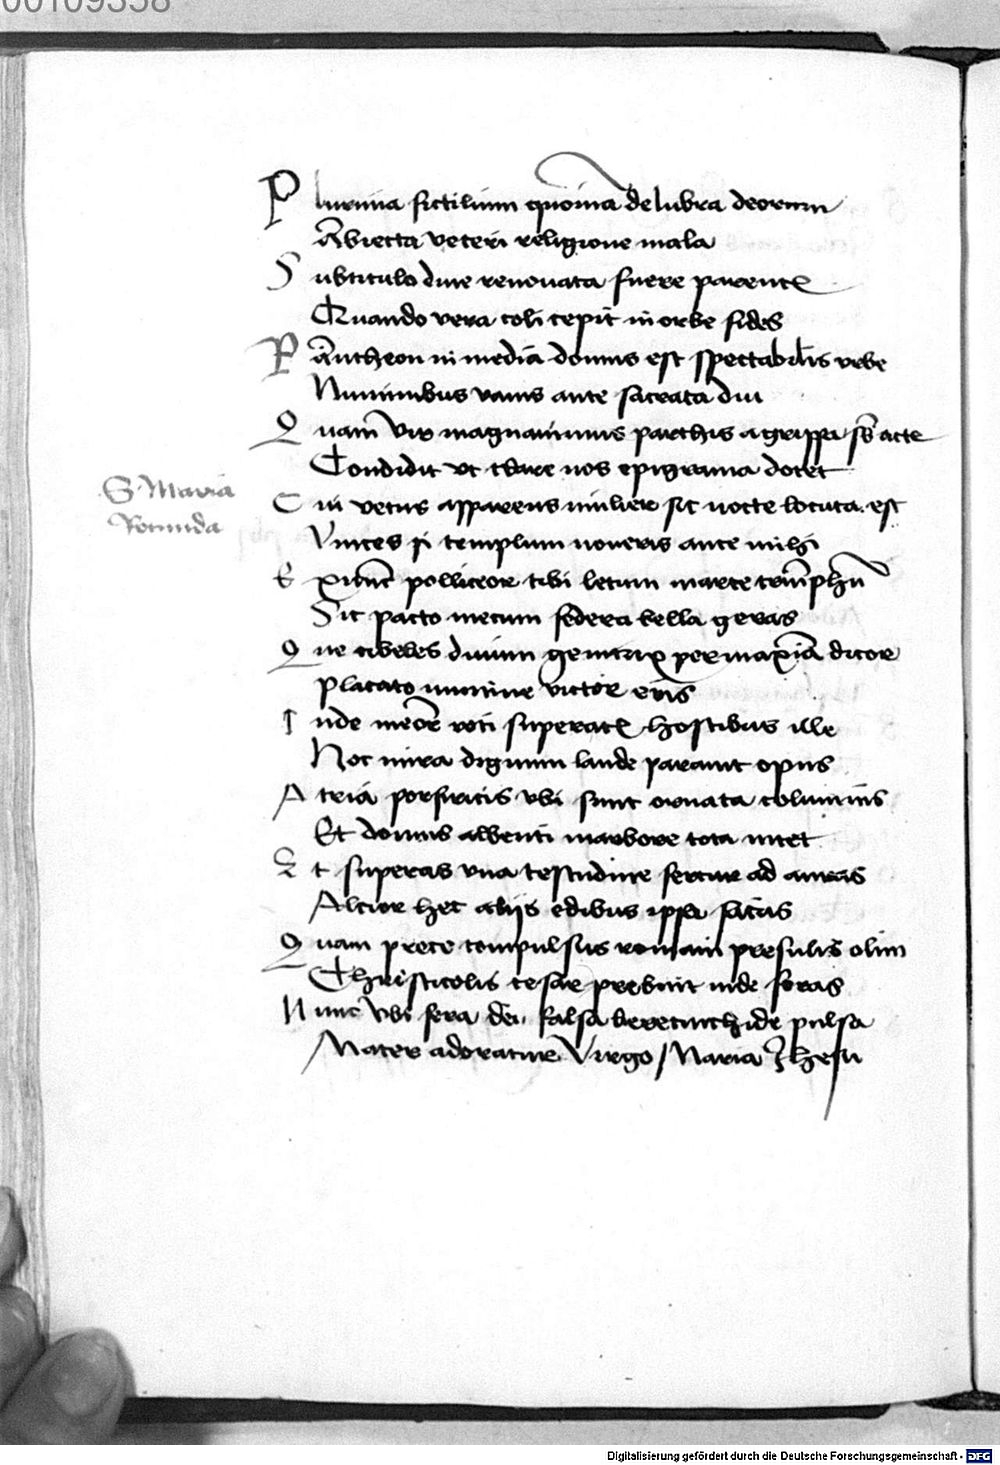 00109358
Plurima fictilium quoniā delubra deorum
Abiecta veteri religione mala
Subtitulo diue renouata fuere parentꝭ
Quando vera coli cepit in orbe fides
Pantheon in media domus est spectabilis vrbe
Numinibus vanis ante sacrata diu
Quam vir magnanimus parthis agrippa
Condidit vt clare nos epigrama docet
S. Maria
Rotunda
Cui vetus apparens mulier sic nocte locuta est
Vinces si templum noueris ante mihi
polliceor tibi letum marte triūphū
Sic pacto mecum federa bella geras
Que cibeles diuum genitrix per maxīa dicor
Placato numine victor eris
Inde memor voti superatꝭ hostibus ille
Hoc mira dignum laude parauit opus
Atria porfiriticis vbi sunt ornata columnis
Et domus albenti marbore tota nitet
Et superas vna testudine fertur ad auras
Altior hec alijs edibus ipsa sacris
Quam prece compulsus romani presulis olim
Christicolis cesar prebuit inde foras
Nunc vbi fera dei falsa berecinthide pulsa
Mater adoratur Virgo Maria Jhesu
Digitalisierung gefördert durch die Deutsche Forschungsgemeinschaft - DFG